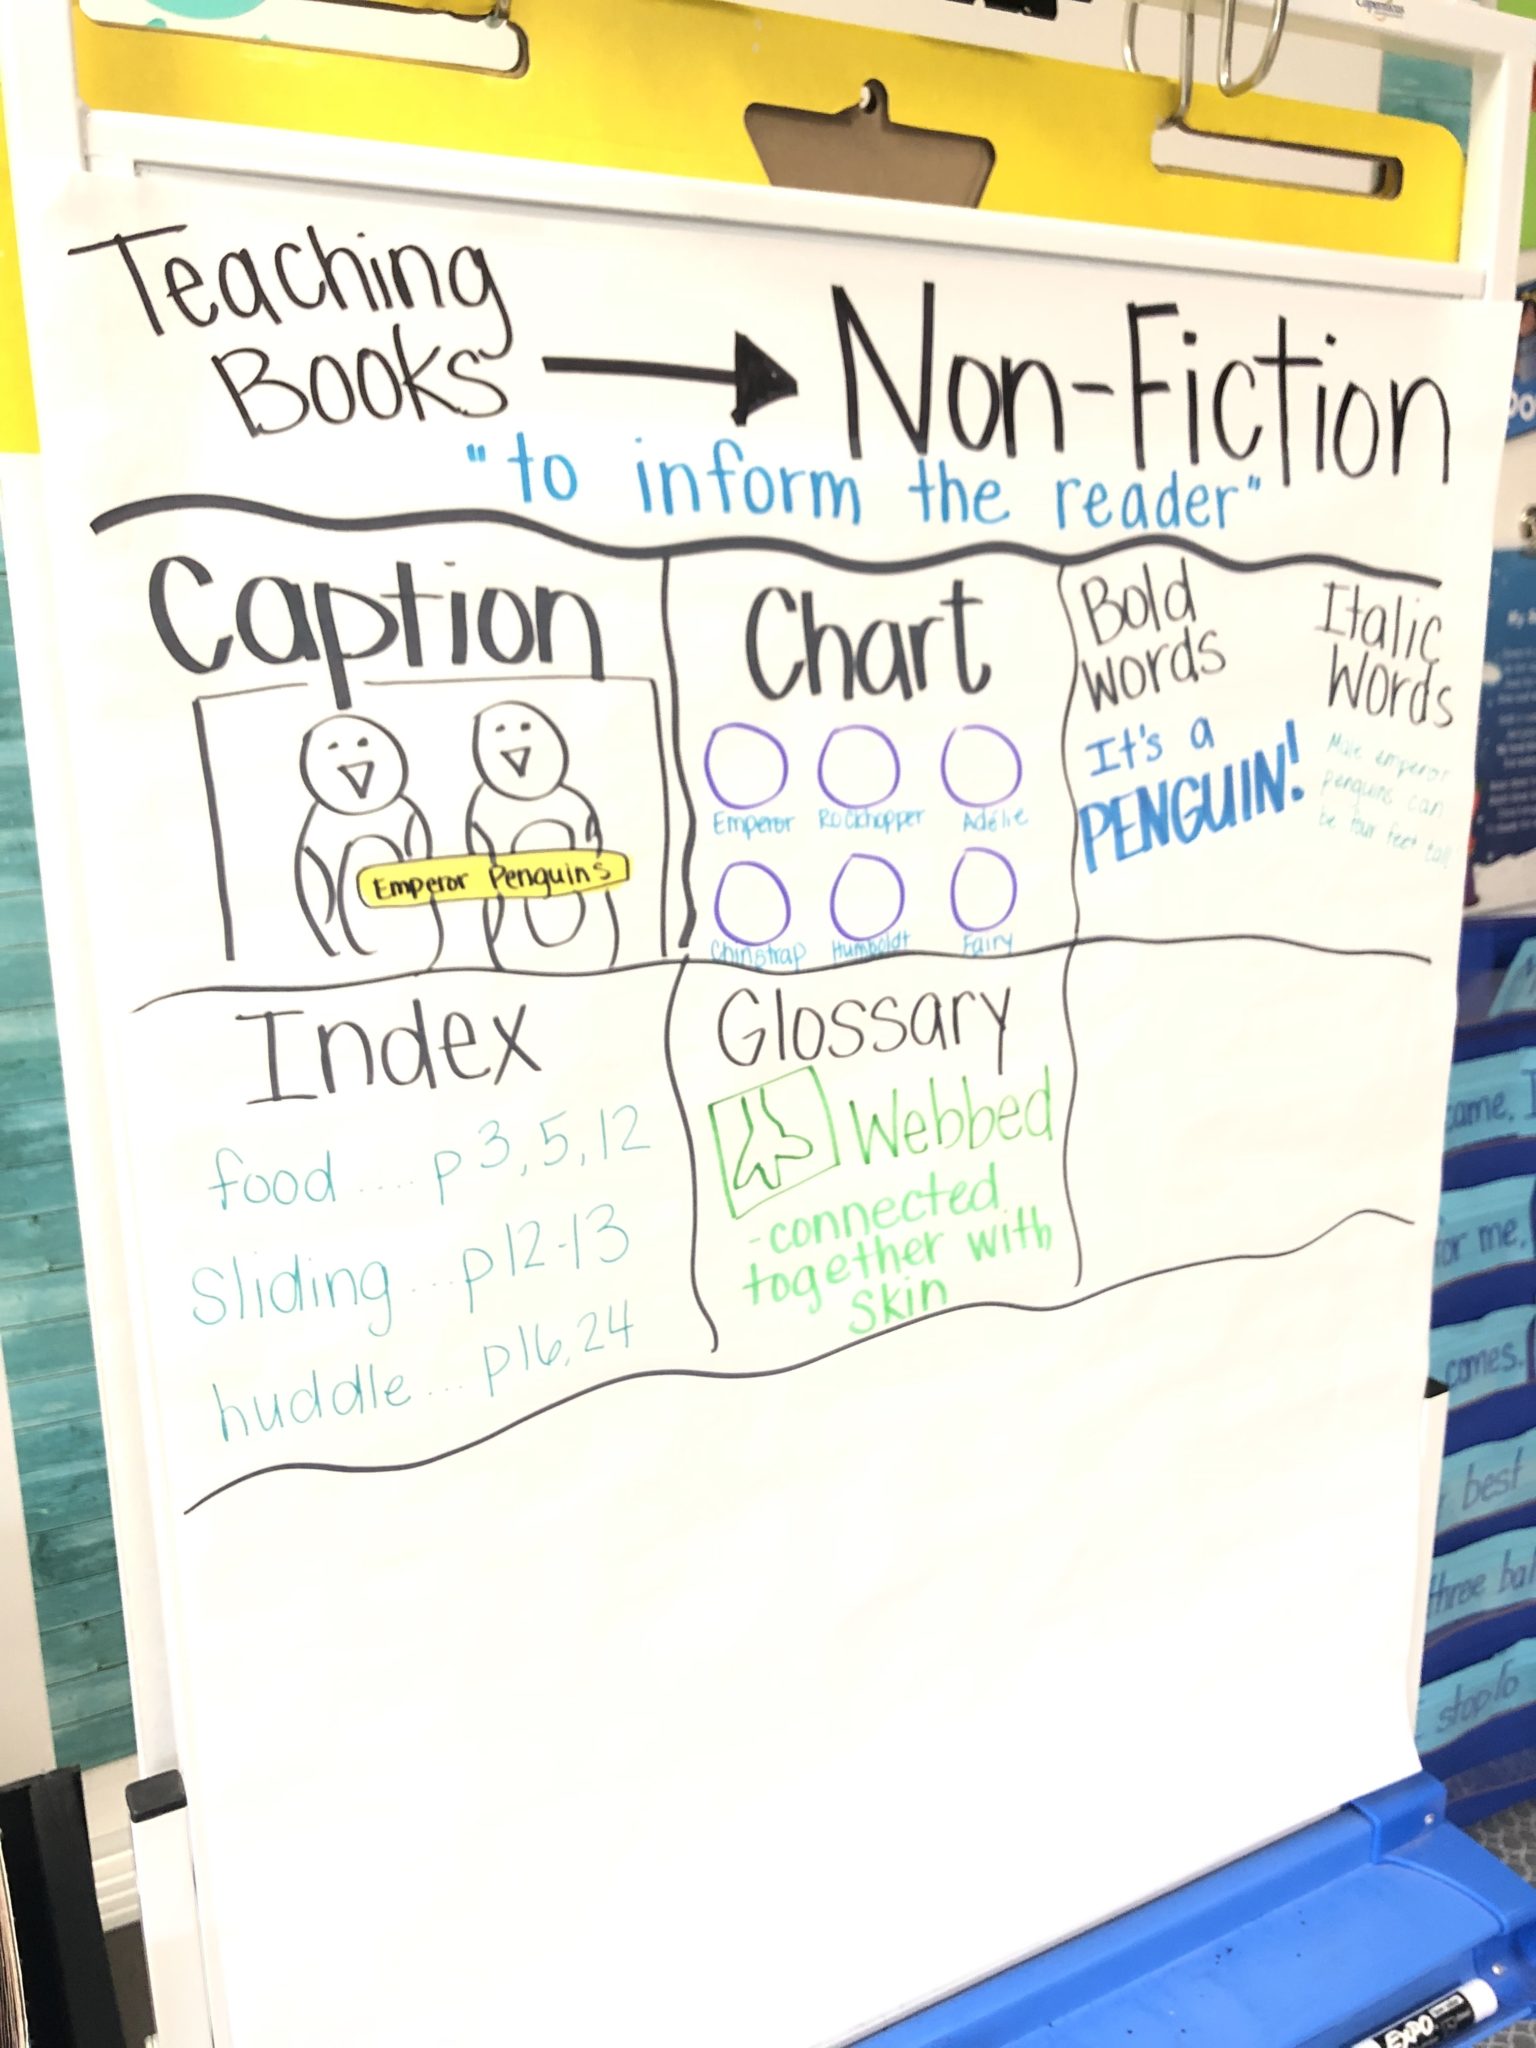 Copernicus
Teaching
Books
Non-Fiction
"to inform the reader"
Caption
Emperor Penguins
Chart
Emperor Rockhopper Adélie
Chinstrap Humboldt Fairy
Bold
Words
It's a
PENGUIN!
Italic
Words
Male emperor
penguins can
be four feet tall
Index
food .... p 3, 5, 12
Sliding ... p 12-13
huddle ... p 16, 24
Glossary
Webbed
- connected
together with
skin
for me,
comes.
best
three
EXPO